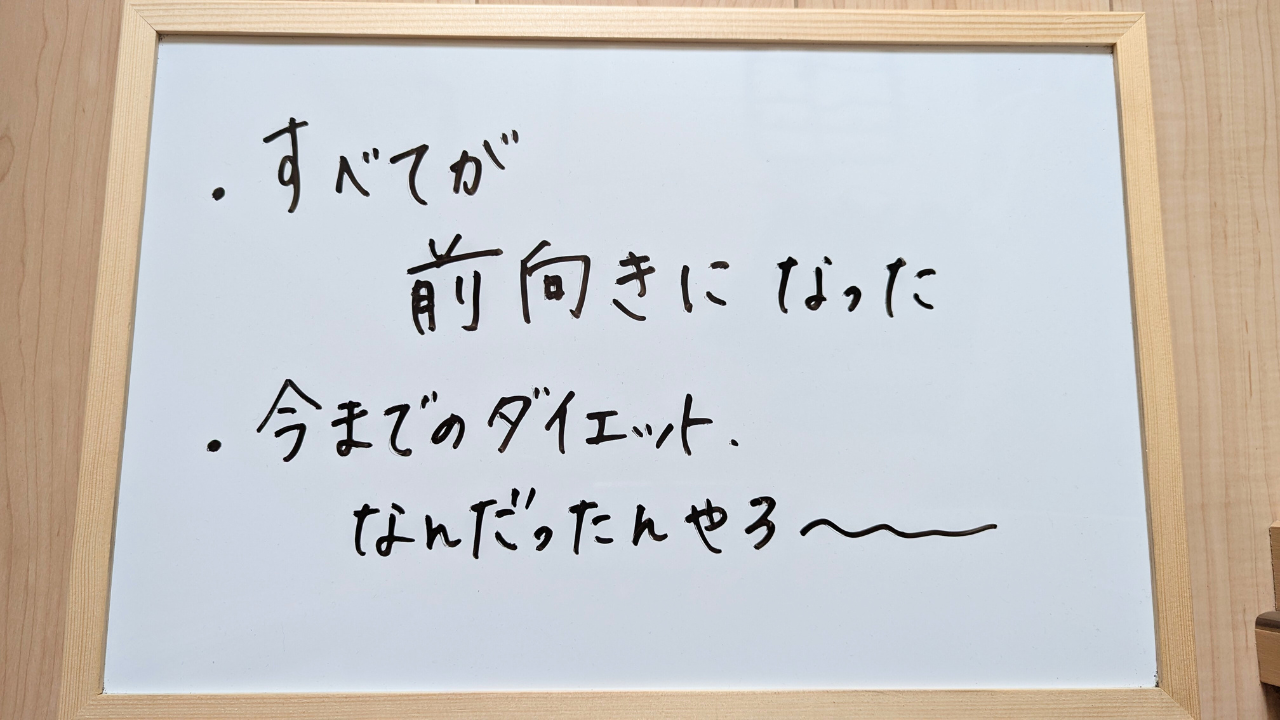 ・すべてが
前向きになった
・今までのダイエット.
なんだったんやろ〜